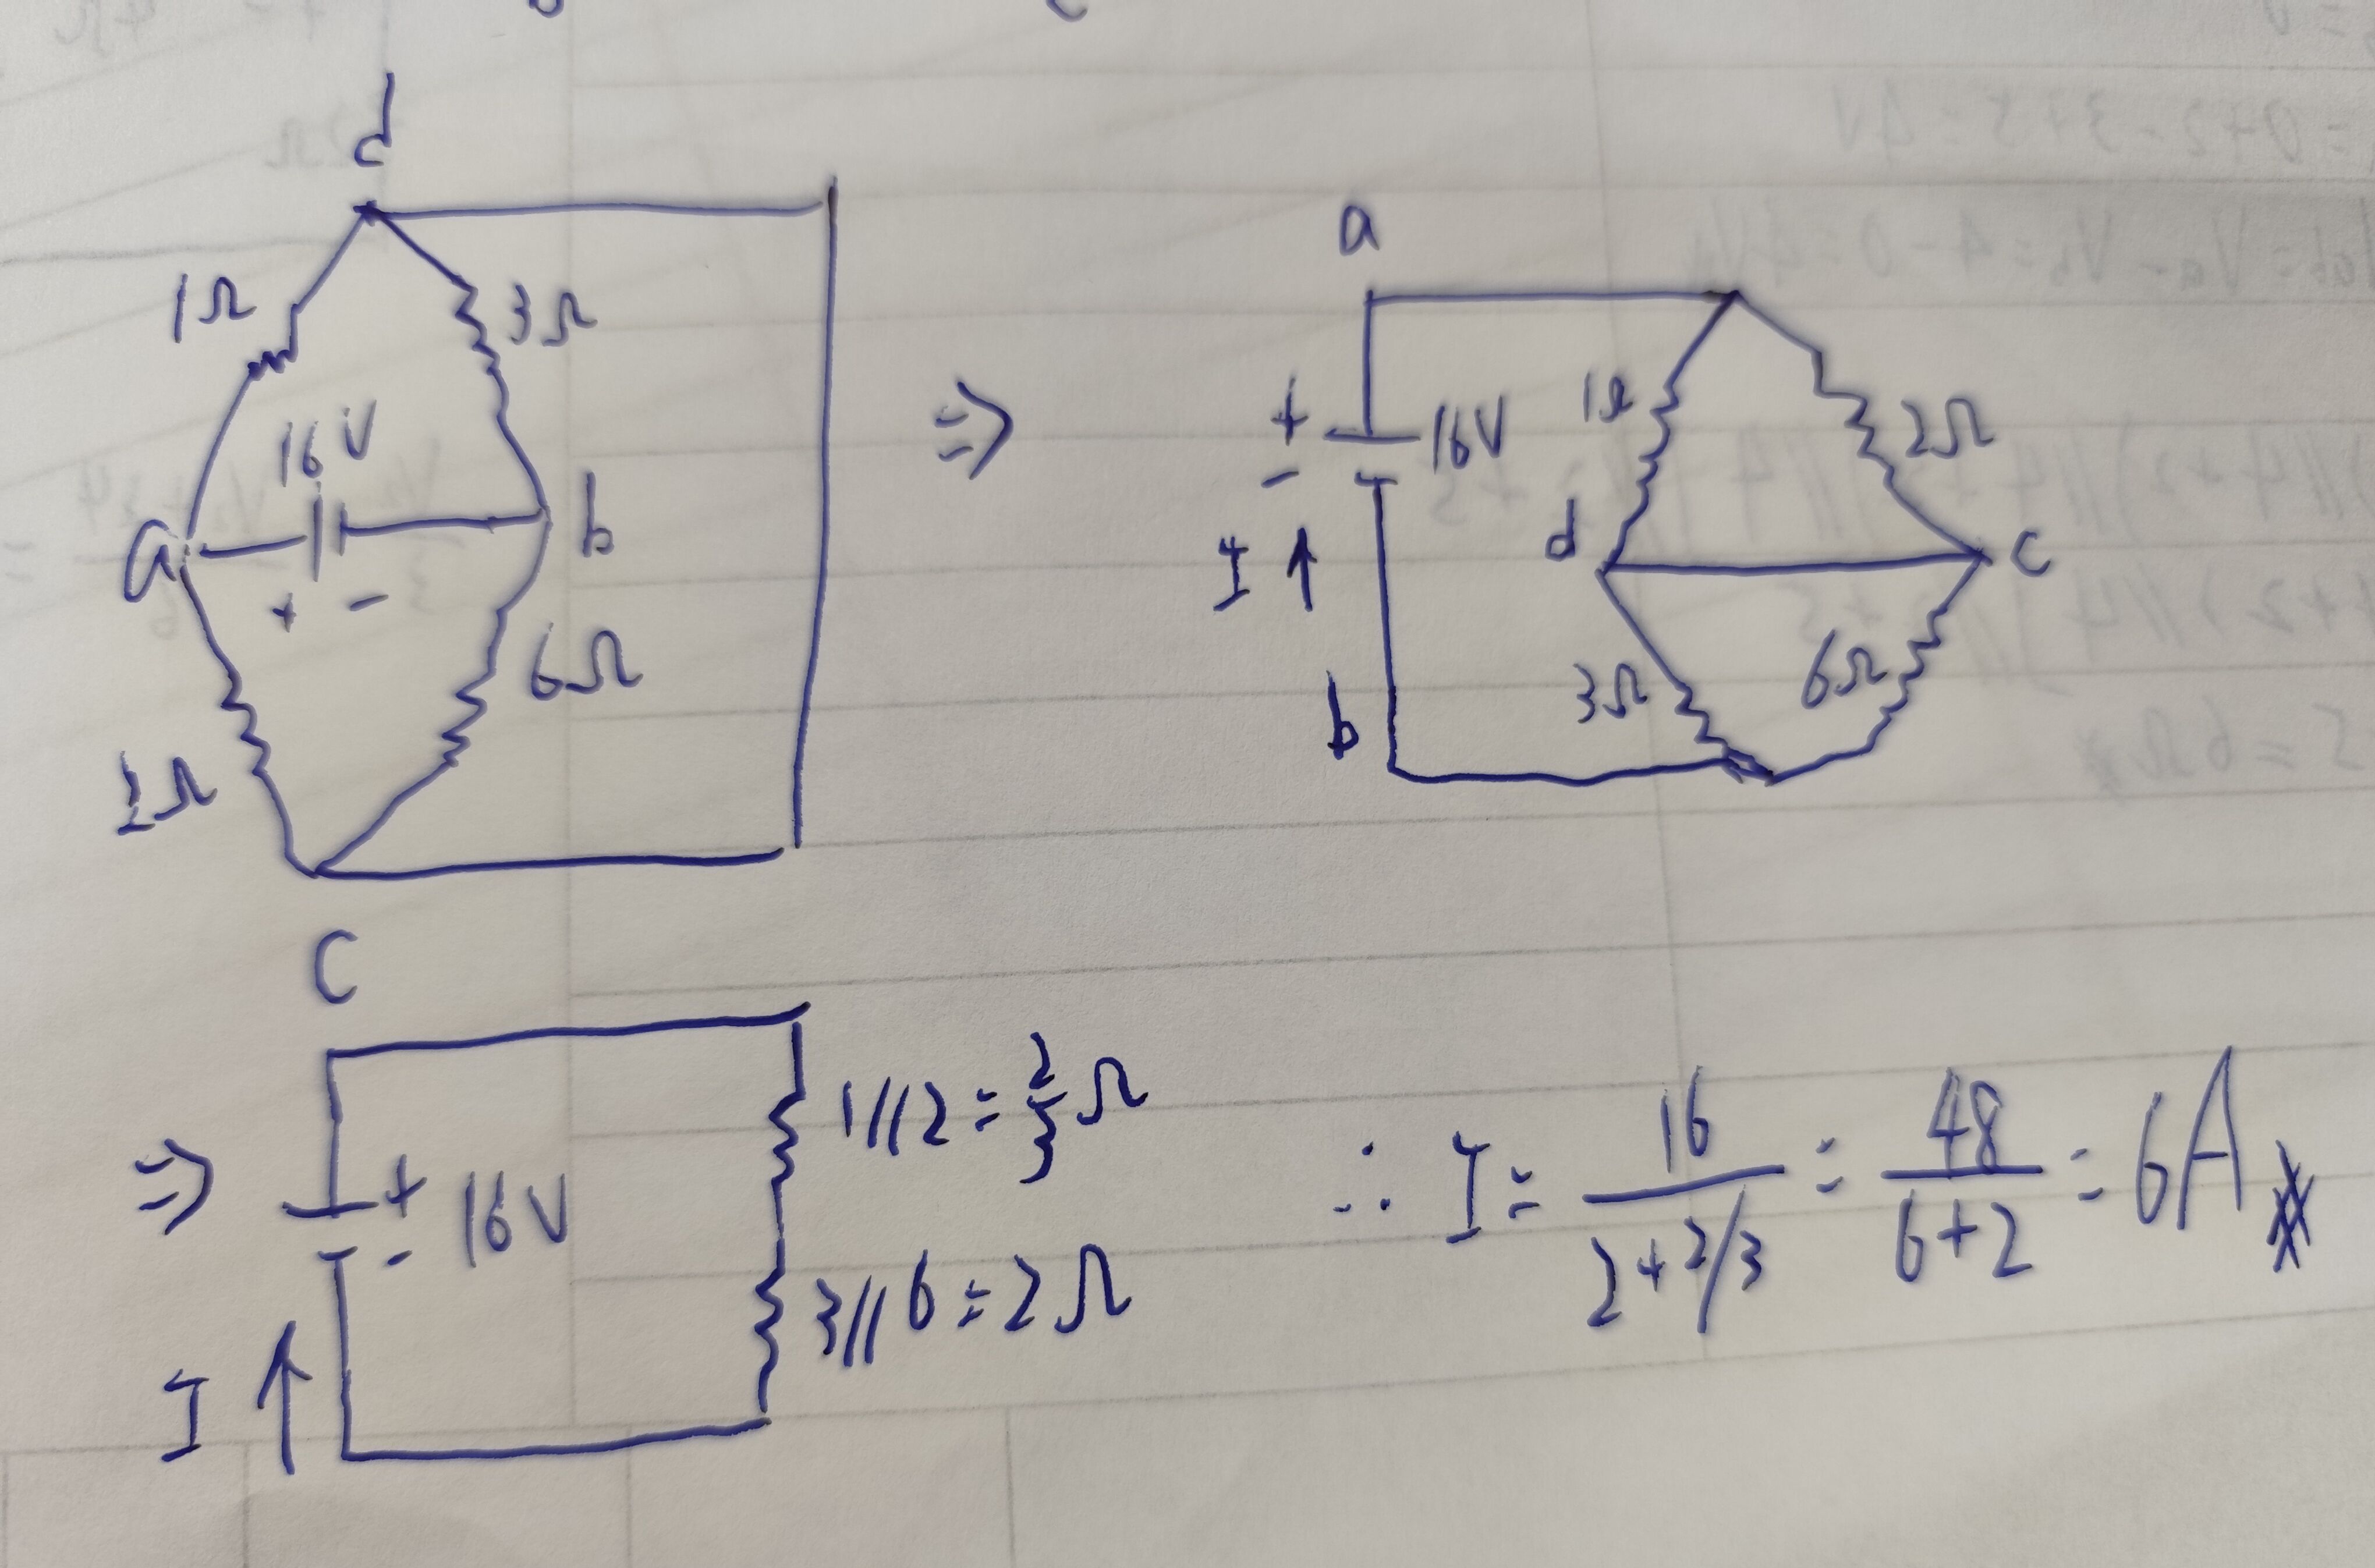 d
1Ω 3Ω
16V
a b
+ -
2Ω 6Ω
C
⇒
a
+ 16V 1Ω 2Ω
-
I ↑ d c
b 3Ω 6Ω
⇒ + 16V 1//2 = 2/3 Ω
-
I ↑ 3//6 = 2Ω
∴ I = 16/(2+2/3) = 48/(6+2) = 6A